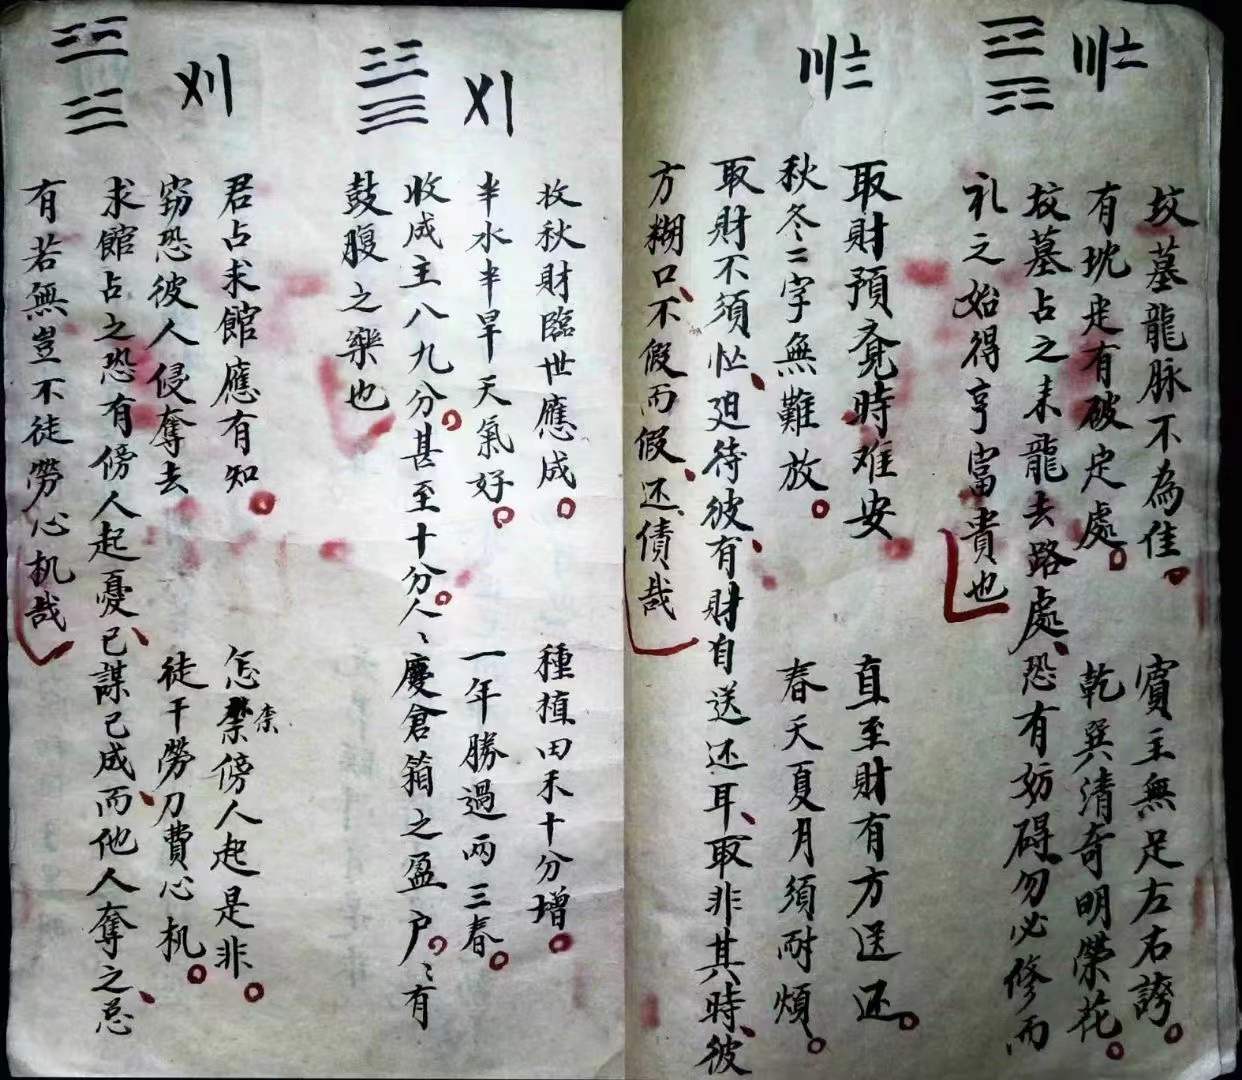 坟墓龍脉不為佳 賓主無足左右誇
有坭走有破定處 乾巽清奇明榮花
坟墓占之未龍去路處恐有妨碍勿必修而
礼之始得亨富貴也
取財預竟時难安 直至財有方送还
秋冬二字無難放 春天夏月須耐煩
取財不須忙廹待彼有財自送还耳取非其時彼
方糊口不假而假还債哉
收秋財臨世應成 種植田禾十分增
半水半旱天氣好 一年勝過兩三春
收成主八九分甚至十分人〻慶倉箱之盈户〻有
鼓腹之樂也
君占求館應有知 怎禁傍人起是非
柰
窃恐彼人侵奪去 徒干勞刀費心机
求館占之恐有傍人起憂已謀已成而他人奪之总
有若無豈不徒勞心机哉